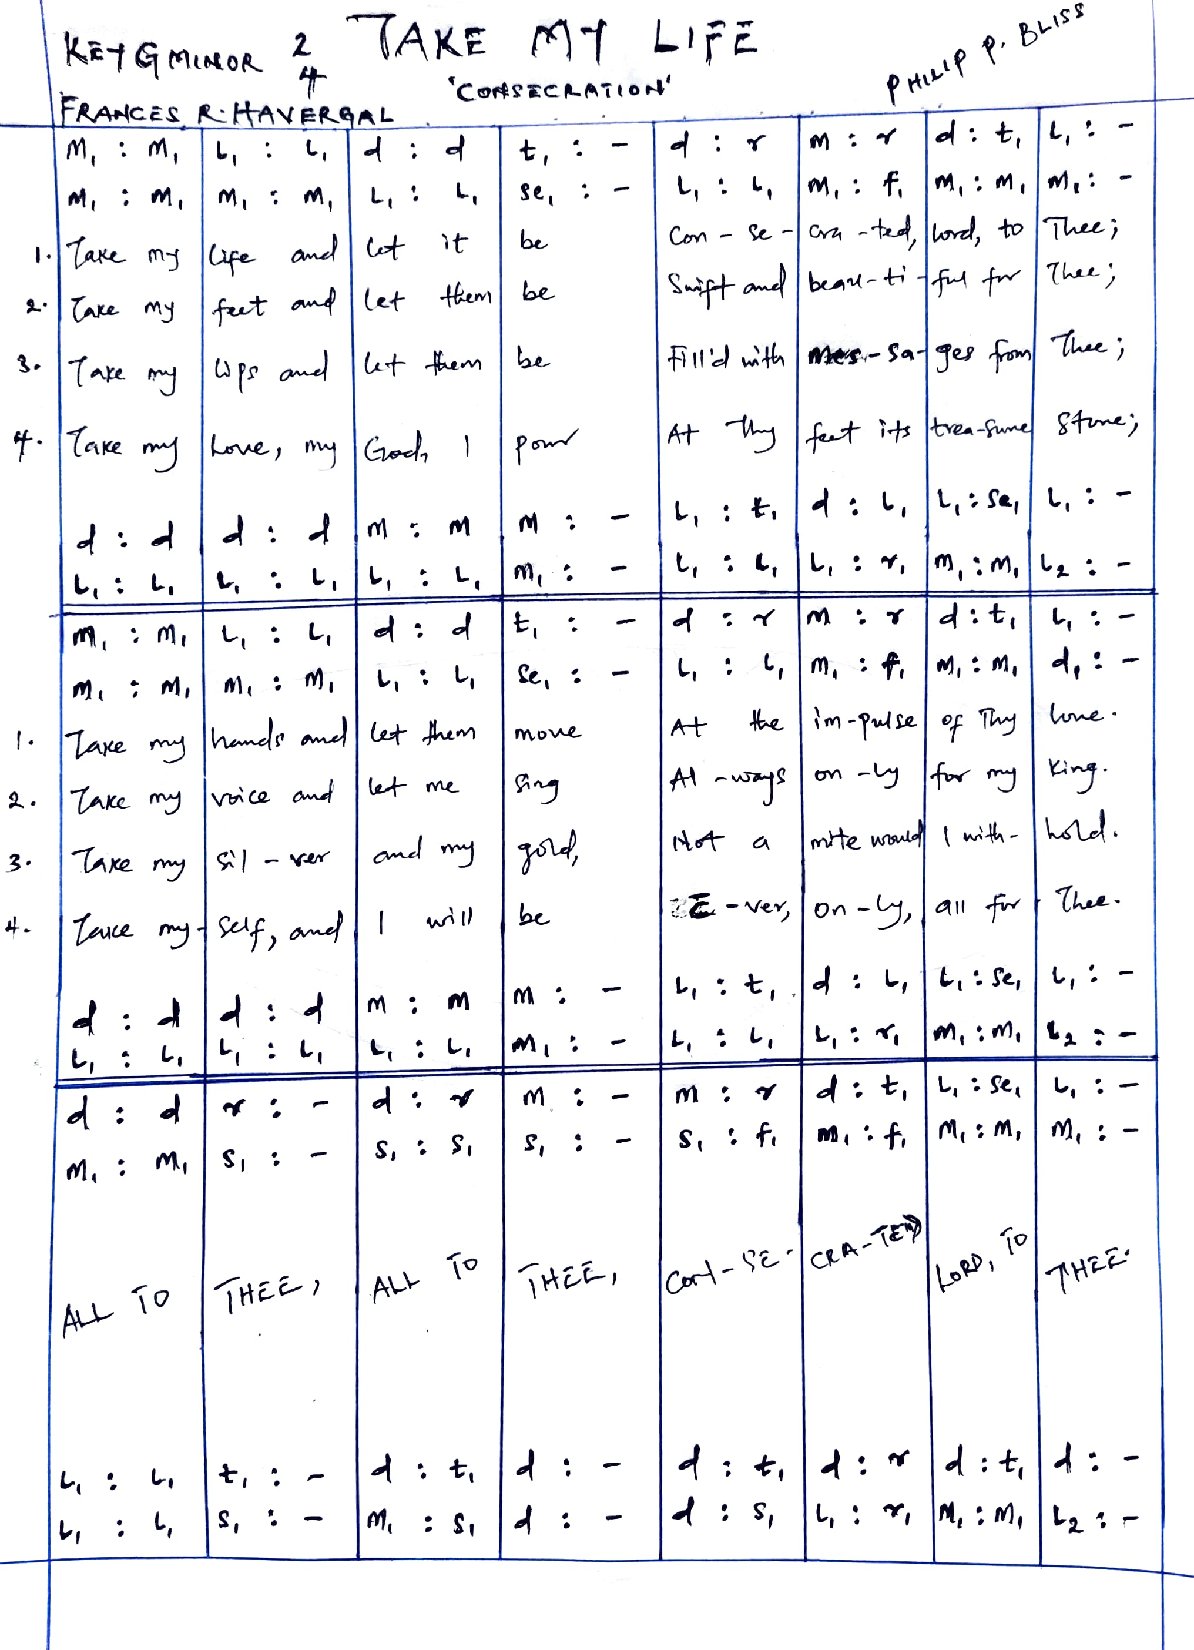 KEY G MINOR 2/4 TAKE MY LIFE
PHILIP P. BLISS
'CONSECRATION'
FRANCES R. HAVERGAL
M₁ : M₁ | L₁ : L₁ | d : d | t₁ : – | d : r | m : r | d : t₁ | L₁ : –
M₁ : M₁ | M₁ : M₁ | L₁ : L₁ | se₁ : – | L₁ : L₁ | M₁ : f₁ | M₁ : M₁ | M₁ : –
1. Take my life and let it be Con-se-cra-ted, Lord, to Thee;
2. Take my feet and let them be Swift and beau-ti-ful for Thee;
3. Take my lips and let them be Fill'd with Mes-sa-ges from Thee;
4. Take my Love, my God, I pour At Thy feet its trea-sure store;
d : d | d : d | m : m | m : – | L₁ : t₁ | d : L₁ | L₁ : se₁ | L₁ : –
L₁ : L₁ | L₁ : L₁ | L₁ : L₁ | M₁ : – | L₁ : L₁ | L₁ : r₁ | M₁ : M₁ | L₂ : –
M₁ : M₁ | L₁ : L₁ | d : d | t₁ : – | d : r | m : r | d : t₁ | L₁ : –
M₁ : M₁ | M₁ : M₁ | L₁ : L₁ | se₁ : – | L₁ : L₁ | M₁ : f₁ | M₁ : M₁ | d₁ : –
1. Take my hands and let them move At the im-pulse of Thy love.
2. Take my voice and let me sing Al-ways on-ly for my King.
3. Take my sil-ver and my gold, Not a mite would I with-hold.
4. Take my-self, and I will be E-ver, on-ly, all for Thee.
d : d | d : d | m : m | m : – | L₁ : t₁ | d : L₁ | L₁ : se₁ | L₁ : –
L₁ : L₁ | L₁ : L₁ | L₁ : L₁ | M₁ : – | L₁ : L₁ | L₁ : r₁ | M₁ : M₁ | L₂ : –
d : d | r : – | d : r | m : – | m : r | d : t₁ | L₁ : se₁ | L₁ : –
M₁ : M₁ | S₁ : – | S₁ : S₁ | S₁ : – | S₁ : f₁ | M₁ : f₁ | M₁ : M₁ | M₁ : –
ALL TO THEE, ALL TO THEE, CON-SE-CRA-TED LORD, TO THEE.
L₁ : L₁ | t₁ : – | d : t₁ | d : – | d : t₁ | d : r | d : t₁ | d : –
L₁ : L₁ | S₁ : – | M₁ : S₁ | d : – | d : S₁ | L₁ : r₁ | M₁ : M₁ | L₂ : –